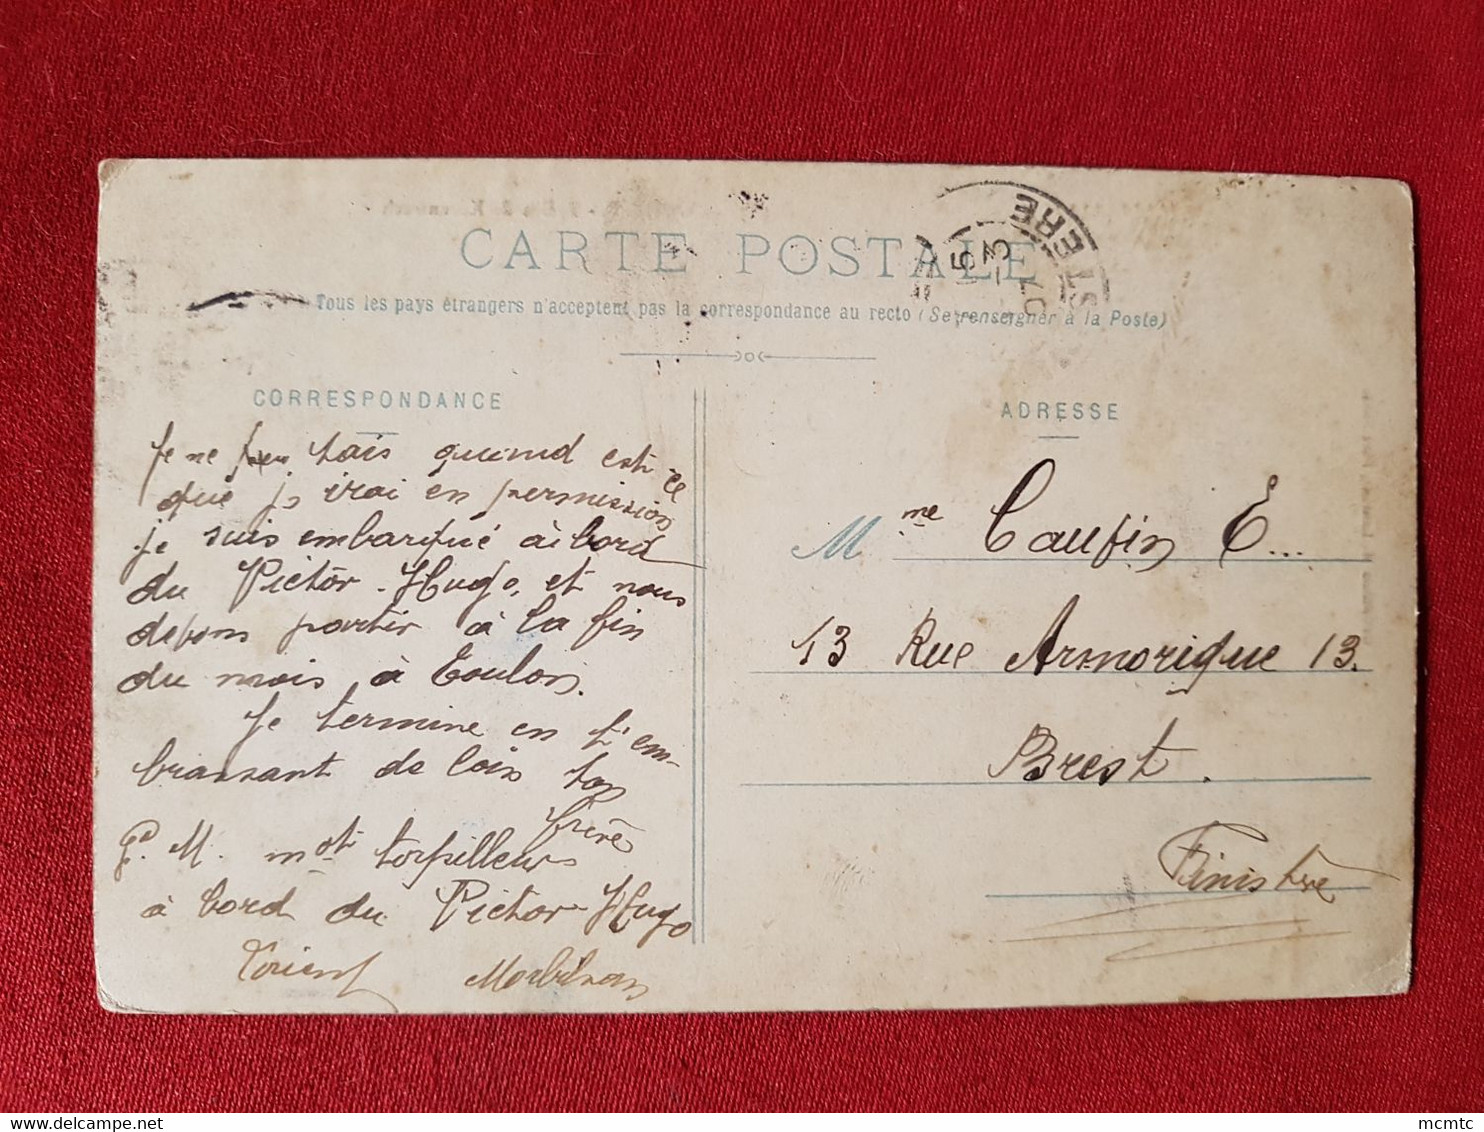 CARTE POSTALE
Tous les pays étrangers n'acceptent pas la correspondance au recto (Se renseigner à la Poste)
CORRESPONDANCE
Je ne tais quand est-ce
que je irai en permission
je suis embarqué à bord
du Victor-Hugo, et nous
devons partir à la fin
du mois à Toulon.
Je termine en t'em-
brassant de loin ton
frère
M. mot torpilleur
à bord du Victor-Hugo
Lorient Morbihan
ADRESSE
Mme Caufin E...
13 Rue Armorique 13.
Brest.
Finistère
5 - 3
07
STERE
mcmtc